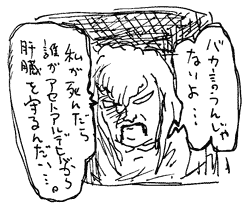 バカ言つんじゃ
ないよ…
私が死んだら
誰がアセトアルデヒドから
肝臓を守るんだい…。